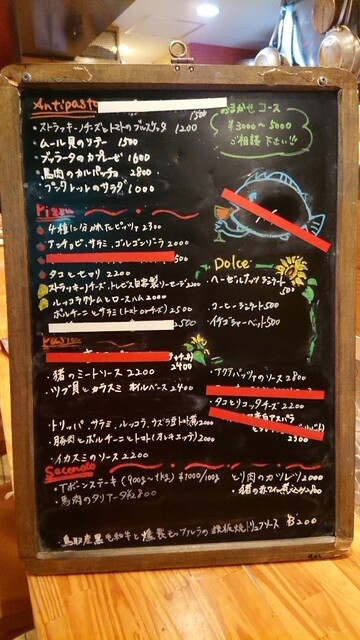 Antipasto
1500
・ストラッキーノチーズとトマトのブルスケッタ 1200
・ムール貝のソテー 1500
・ブッラータのカプレーゼ 1600
・馬肉のカルパッチョ 2800
のサラダ 1000
おまかせコース
¥3000〜5000
ご相談下さい!!!
Pizza
4種に分かれたピッツァ 2300
アンチョビ・サラミ、ゴルゴンゾーラ 2000
500
タコとセロリ 2200
ストラッキーノチーズ、トレビス自家製ソーセージ 2200
ルッコラクリームとロースハム 2000
ポルチーニとサラミ(トマトorチーズ) 2500
2500
Dolce
・ヘーゼルナッツジェラート 500
・コーヒージェラート 500
・イチゴシャーベット 500
2400
・猪のミートソース 2200
・ツブ貝とカラスミ オイルベース 2400
・トリッパ、サラミ、ルッコラ、ウズラ豆トマト煮 2000
・豚肉とポルチーニとトマト(オレキエッテ) 2000
・イカスミのソース 2200
・アクアパッツァのソース 2800
・タコとリコッタチーズ 2200
アスパラ
2300
Secondo
・Tボーンステーキ (900g〜1kg) ¥1000/100g
・馬肉のタリアータ ¥2800
とり肉のカツレツ 2000
・猪の赤ワイン煮
鳥取産黒毛和牛と燻製モッツァレラの鉄板焼トリュフソース